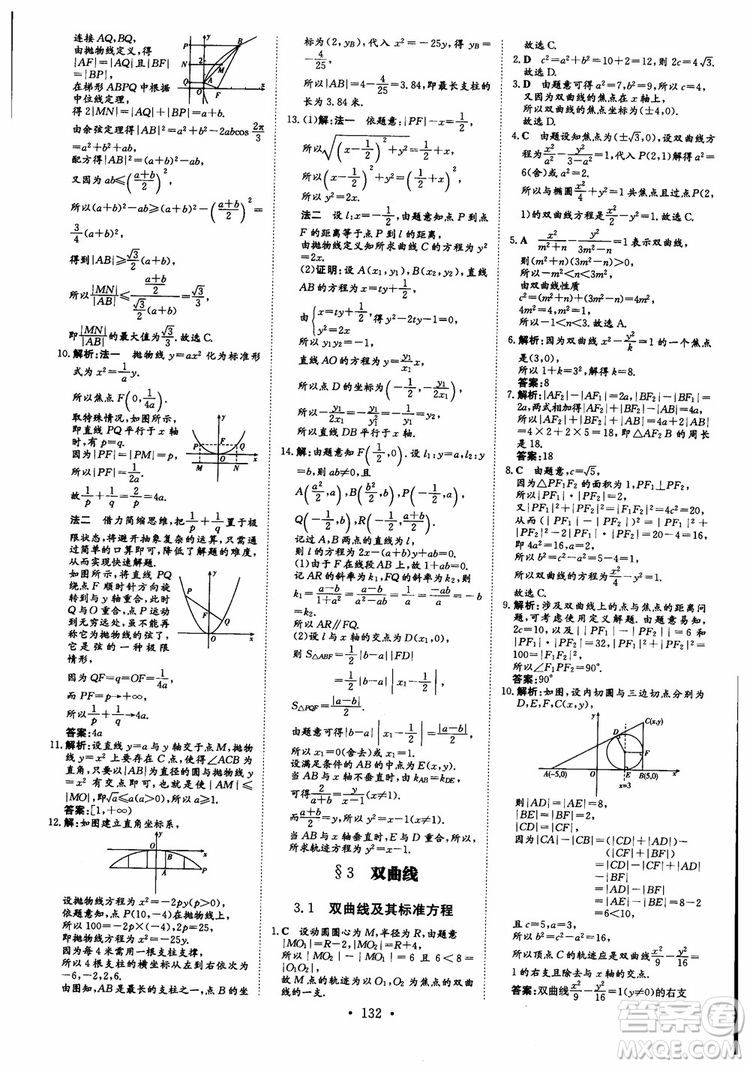 连接 AQ,BQ,
由抛物线定义,得
|AF|=|AQ|,|BF|
=|BP|,
在梯形 ABPQ 中根据
中位线定理,
得2|MN|=|AQ|+|BP|=a+b.
由余弦定理得|AB|²=a²+b²-2abcos 2π/3
=a²+b²+ab,
配方得|AB|²=(a+b)²-ab,
又因为 ab≤((a+b)/2)²,
所以(a+b)²-ab≥(a+b)²-((a+b)/2)²=
3/4(a+b)²,
得到|AB|≥√3/2(a+b).
所以|MN|/|AB|≤((a+b)/2)/(√3/2(a+b))=√3/3,
即|MN|/|AB|的最大值为√3/3.故选C.
10.解析:法一 抛物线 y=ax² 化为标准形
式为 x²=1/a y,
所以焦点 F(0,1/4a),
取特殊情况,如图所示,
即直线 PQ 平行于 x 轴
时,有 p=q.
因为|PF|=|PM|=p=
1/2a,
故1/p+1/q=1/p+1/p=2/p=4a.
法二 借力简缩思维,把1/p+1/q置于极
限状态,将避开抽象复杂的运算,只需通
过简单的口算即可,降低了问题的难度,
从而实现快速解题.
如图所示,将直线 PQ
绕点 F 顺时针方向旋
转到与 y 轴重合,此时
Q 与 O 重合,点 P 运动
到无穷远处,虽不能再
称它为抛物线的弦了,
它是弦的一种极限
情形,
因为 QF=q=OF=1/4a,
而 PF=p→+∞,
所以1/p+1/q→4a.
答案:4a
11.解析:设直线 y=a 与 y 轴交于点 M,抛物
线 y=x² 上要存在 C 点,使得∠ACB 为
直角,只要以|AB|为直径的圆与抛物线
y=x² 有交点即可,也就是使|AM|≤
|MO|,即√a≤a(a>0),所以 a≥1.
答案:[1,+∞)
12.解:如图建立直角坐标系,
设抛物线方程为 x²=-2py(p>0),
依题意知,点 P(10,-4)在抛物线上,
所以100=-2p×(-4),2p=25.
即抛物线方程为 x²=-25y.
因为每4米需用一根支柱支撑,
所以4根支柱的横坐标从左往右依次为
-6,-2,2,6.
由图知,AB 是最长的支柱之一,点 B 的坐
标为(2,y_B),代入 x²=-25y,得 y_B=
-4/25.
所以|AB|=4-4/25=3.84,即最长支柱的
长为3.84米.
13.(1)解析:法一 依题意:|PF|-x=1/2,
所以√((x-1/2)²+y²)=x+1/2,
所以(x-1/2)²+y²=(x+1/2)²,
所以 y²=2x.
法二 设 l:x=-1/2,由题意知点 P 到点
F 的距离等于点 P 到直线 l 的距离,
由抛物线定义知所求曲线 C 的方程为 y²
=2x.
(2)证明:设 A(x₁,y₁),B(x₂,y₂),直线
AB 的方程为 x=ty+1/2,
由{x=ty+1/2, y²=2x,得 y²-2ty-1=0,
所以 y₁y₂=-1,
直线 AO 的方程为 y=y₁/x₁ x,
所以点 D 的坐标为(-1/2,-y₁/2x₁),
所以-y₁/2x₁=-y₁/y₁²=-1/y₁=y₂,
所以直线 DB 平行于 x 轴.
14.解:由题意知 F(1/2,0).设 l₁:y=a,l₂:y=
b,则 ab≠0,且
A(a²/2,a),B(b²/2,b),P(-1/2,a),
Q(-1/2,b),R(-1/2,(a+b)/2).
记过 A,B 两点的直线为 l,
则 l 的方程为2x-(a+b)y+ab=0.
(1)由于 F 在线段 AB 上,故1+ab=0.
记 AR 的斜率为 k₁,FQ 的斜率为 k₂,则
k₁=(a-b)/(1+a²)=(a-b)/(a²-ab)=1/a=-ab/a=-b=k₂.
所以 AR∥FQ.
(2)设 l 与 x 轴的交点为 D(x₁,0),
则 S△ABF=1/2|b-a||FD|
=1/2|b-a||x₁-1/2|,
S△PQF=|a-b|/2.
由题意可得|b-a||x₁-1/2|=|a-b|/2,
所以 x₁=0(舍去)或 x₁=1.
设满足条件的 AB 的中点为 E(x,y).
当 AB 与 x 轴不垂直时,由 k_AB=k_DE
可得2/(a+b)=y/(x-1)(x≠1).
而(a+b)/2=y,所以 y²=x-1(x≠1).
当 AB 与 x 轴垂直时,E 与 D 重合,
所求轨迹方程为 y²=x-1.
§3 双曲线
3.1 双曲线及其标准方程
1.C 设动圆圆心为 M,半径为 R,由题意
|MO₁|=R+1,|MO₂|=R-5,
所以|MO₁|-|MO₂|=6且6<8=
|O₁O₂|.
故 M 点的轨迹为以 O₁,O₂为焦点的双曲
线的一支.
故选 C.
2.D c²=a²+b²=10+2=12,所以2c=4√3.
故选 D.
3.D 由题意可得 a²=7,b²=9,所以 c=4,
又因为双曲线的焦点在 x 轴上,
故双曲线的焦点坐标为(±4,0).
故选 D.
4.C 由题意设知焦点为(±√3,0),设双曲线方
程为x²/a²-y²/(3-a²)=1,代入 P(2,1)解得 a²=
6(舍)或 a²=2,
所以与椭圆x²/4+y²=1共焦点且过点 P(2,
1)的双曲线方程是x²/2-y²=1.故选 C.
5.A x²/(m²+n)-y²/(3m²-n)=1表示双曲线,
则(m²+n)(3m²-n)>0,
所以-m²<n<3m².
由双曲线性质知:
c²=(m²+n)+(3m²-n)=4m²=4,
所以-1<n<3.故选 A.
6.解析:因为双曲线 x²-y²/k=1的一个焦点
是(3,0),
所以1+k=3²=9,解得 k=8.
答案:8
7.解析:|AF₂|-|AF₁|=2a,|BF₂|-|BF₁|=
2a,两式相加可得|AF₂|+|BF₂|-|AB|=4a,
所以|AF₂|+|BF₂|+|AB|=4a+2|AB|
=4×2+2×5=18,即△ABF₂的周
长是18.
答案:18
8.C 由题意,c=√5,
因为△PF₁F₂的面积为1,PF₁⊥PF₂,
所以|PF₁|·|PF₂|=2,
又因为|PF₁|²+|PF₂|²=(2c)²=20,
从而(|PF₁|-|PF₂|)²=|PF₁|²+
|PF₂|²-2|PF₁|·|PF₂|=20-4=16,
即4a²=16,所以 a²=4,
所以 b²=c²-a²=5-4=1,
所以双曲线的方程为x²/4-y²=1.
故选 C.
9.解析:涉及双曲线上的点与焦点的距离问
题,可考虑应用定义.由题意易知,
2c=10,||PF₁|-|PF₂||=6,所以|PF₁|²+
|PF₂|²=(|PF₁|-|PF₂|)²+2|PF₁||PF₂|=
100=|F₁F₂|²,
所以∠F₁PF₂=90°.
答案:90°
10.解析:如图,设内切圆与三边切点分别为
D,E,F,
C(x,y)
A(-5,0)
B(5,0)
x=3
则|AD|=|AE|=8,
|BE|=|BF|=2,
|CD|=|CF|.
因为|CA|-|CB|=(|CD|+|AD|)-
(|CF|+|BF|)
=|AD|-|BF|
=6=2a.
且 c=5,
故 a=3,b²=c²-a²=16.
所以顶点 C 的轨迹方程为双曲线x²/9-y²/16=
1 的右支且除去与 x 轴的交点.
答案:双曲线x²/9-y²/16=1(y≠0)的右支
· 132 ·
答案圈
MXQE.COM